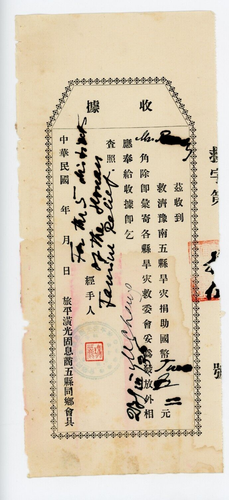 字第
號
收據
茲收到
Mr.
救濟豫南五縣旱災捐助國幣 Two 元
角除即彙寄各縣旱災救委會妥為散放外相
應奉給收據即乞
查照
經手人
For the 5 districts
of the Honan
Famine Relief
中華民國 年 月 日
旅平潢光固息商五縣同鄉會具